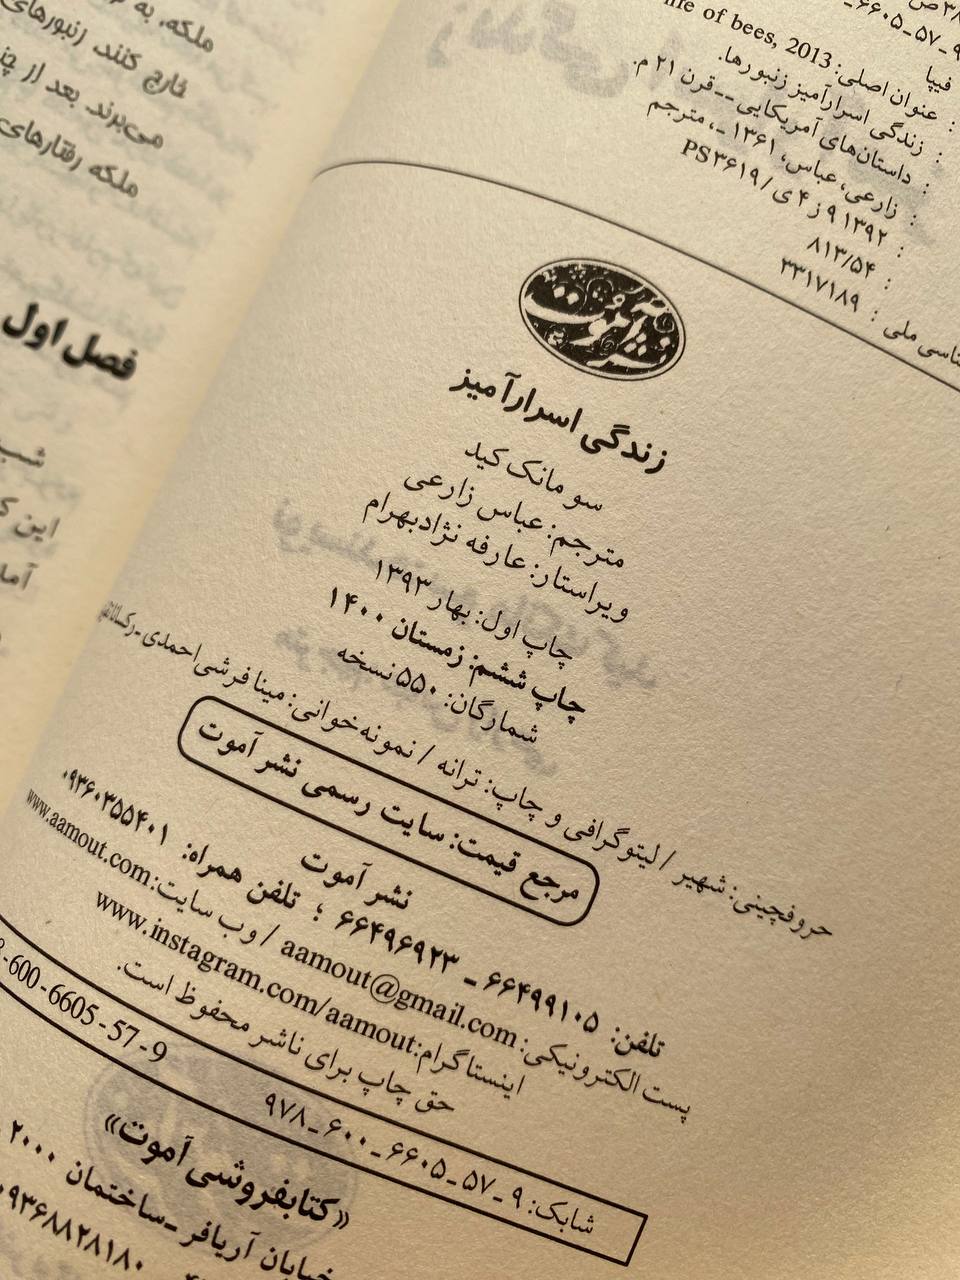 life of bees, 2013 :عنوان اصلی
فیپا
: زندگی اسرارآمیز زنبورها.
: داستان‌های آمریکایی -- قرن ۲۱ م.
: زارعی، عباس، ۱۳۶۱ ـ، مترجم
: ۱۳۹۲ ۹ز۴ی/PS۳۶۱۹
: ۸۱۳/۵۴
ملی : ۳۳۱۷۱۸۹
نشر آموت
زندگی اسرارآمیز
سو مانک کید
مترجم: عباس زارعی
ویراستار: عارفه نژادبهرام
چاپ اول: بهار ۱۳۹۳
چاپ ششم: زمستان ۱۴۰۰
شمارگان: ۵۵۰ نسخه
حروفچینی: شهیر / لیتوگرافی و چاپ: ترانه / نمونه‌خوانی: مینا فرشی‌احمدی ـ
مرجع قیمت: سایت رسمی نشر آموت
نشر آموت
تلفن: ۶۶۴۹۹۱۰۵ ـ ۶۶۴۹۶۹۲۳ ؛ تلفن همراه: ۰۹۳۶۰۳۵۵۴۰۱
پست الکترونیکی: aamout@gmail.com / وب سایت: www.aamout.com
اینستاگرام: www.instagram.com/aamout
حق چاپ برای ناشر محفوظ است.
شابک: ۹ ـ ۵۷ ـ ۶۶۰۵ ـ ۶۰۰ ـ ۹۷۸
-600-6605-57-9
«کتابفروشی آموت»
خیابان آریافر ـ ساختمان ۲۰۰۰
۰۹۳۶۸۸۲۸۱۸۰
ملکه، به
خارج کنند، زنبورهای
می‌برند. بعد از
ملکه رفتارهای
فصل اول
شب
این